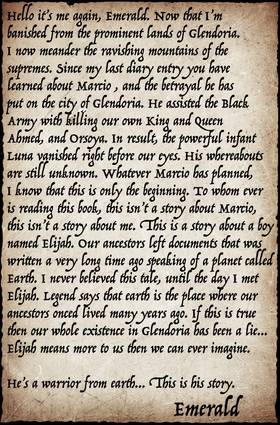 Hello it's me again, Emerald. Now that I'm
banished from the prominent lands of Glendoria.
I now meander the ravishing mountains of the
supremes. Since my last diary entry you have
learned about Marcio , and the betrayal he has
put on the city of Glendoria. He assisted the Black
Army with killing our own King and Queen
Ahmed, and Orsoya. In result, the powerful infant
Luna vanished right before our eyes. His whereabouts
are still unknown. Whatever Marcio has planned,
I know that this is only the beginning. To whom ever
is reading this book, this isn't a story about Marcio,
this isn't a story about me. This is a story about a boy
named Elijah. Our ancestors left documents that was
written a very long time ago speaking of a planet called
Earth. I never believed this tale, until the day I met
Elijah. Legend says that earth is the place where our
ancestors onced lived many years ago. If this is true
then our whole existence in Glendoria has been a lie...
Elijah means more to us then we can ever imagine.
He's a warrior from earth... This is his story.
Emerald